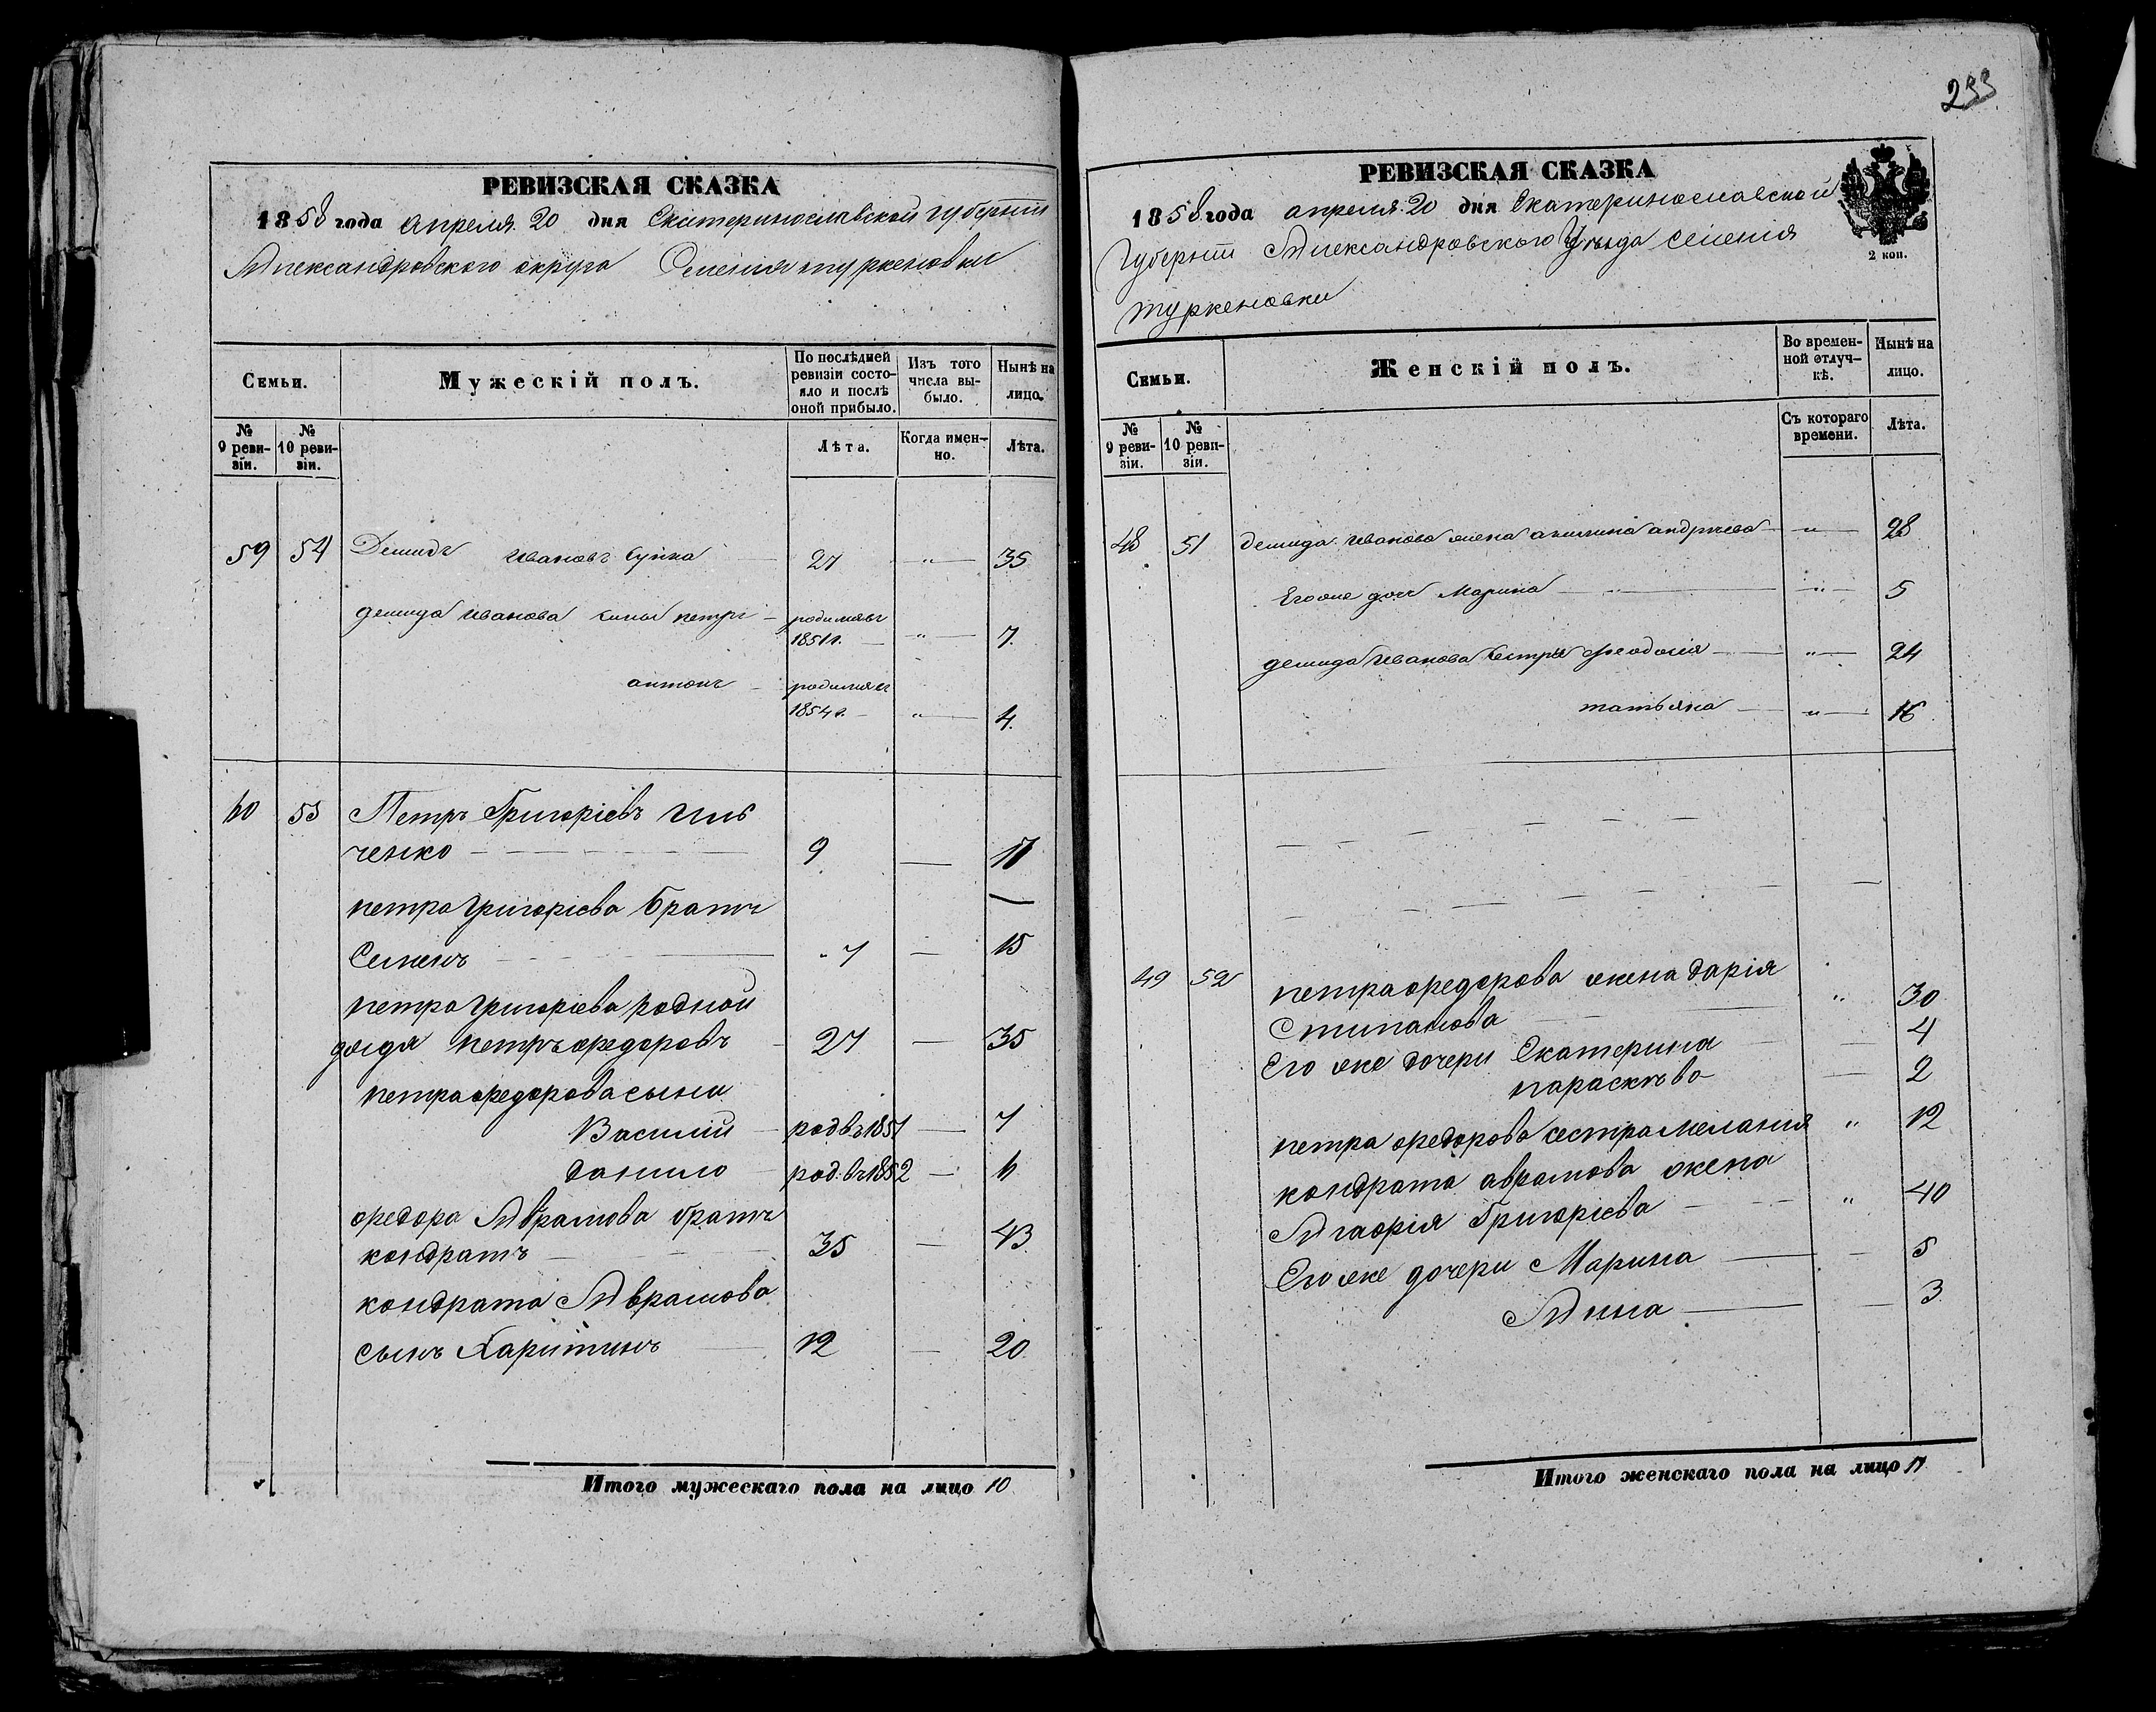 233
РЕВИЗСКАЯ СКАЗКА
1858 года апреля 20 дня Екатеринославской губернии
Александровского округа Селения туркеновки
Семьи.
Мужескій полъ.
По послѣдней ревизіи состояло и послѣ оной прибыло.
Изъ того числа выбыло.
Нынѣ на лицо.
№ 9 ревизіи.
№ 10 ревизіи.
Лѣта.
Когда именно.
Лѣта.
59 54 Демидъ Ивановъ 27 " 35
демида Иванова сины петръ родился въ
1851 г. " 7.
антонъ родился въ
1854 г. " 4.
60 55 Петръ Григоріевъ Иль
ченко 9 17
петра Григоріева братъ
Семенъ 7 15
петра Григоріева родной
дядя петръ федоровъ 27 35
петра федорова сыни
Василий род въ 1851 7
данило род. въ 1852 6
федора Аврамова братъ
кондратъ 35 43
кондрата Аврамова
сынъ Харитинъ 12 20
Итого мужескаго пола на лицо 10
РЕВИЗСКАЯ СКАЗКА
1858 года апреля 20 дня Екатеринославской
Губернии Александровского Уѣзда селенія
туркеновки
2 коп.
Семьи.
Женскій полъ.
Во временной отлучкѣ.
Нынѣ на лицо.
№ 9 ревизіи.
№ 10 ревизіи.
Съ котораго времени.
Лѣта.
48 51 демида Иванова жена акилина андрѣева " 28
Его же доч Марина " 5
демида Иванова сестры феодосія " 24
татьяна " 16
49 52 петра федорова жена дарія
Стипанова " 30
Его же дочери Екатерина 4
параскѣва 2
петра федорова сестра мелания " 12
кондрата аврамова жена
Агафія Григоріева " 40
Его же дочери Марина 5
Анна 3
Итого женскаго пола на лицо 11